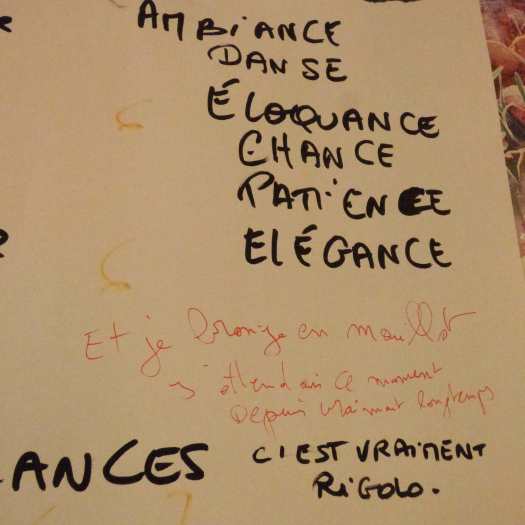 AMBiANCE
DANSE
ÉLOQUANCE
CHANCE
PATiENCE
ElÉGANCE
Et je bronze en maillot
j'attendais ce moment
Depuis vraiment longtemps
ANCES C'EST VRAiMENT
RiGOLO.